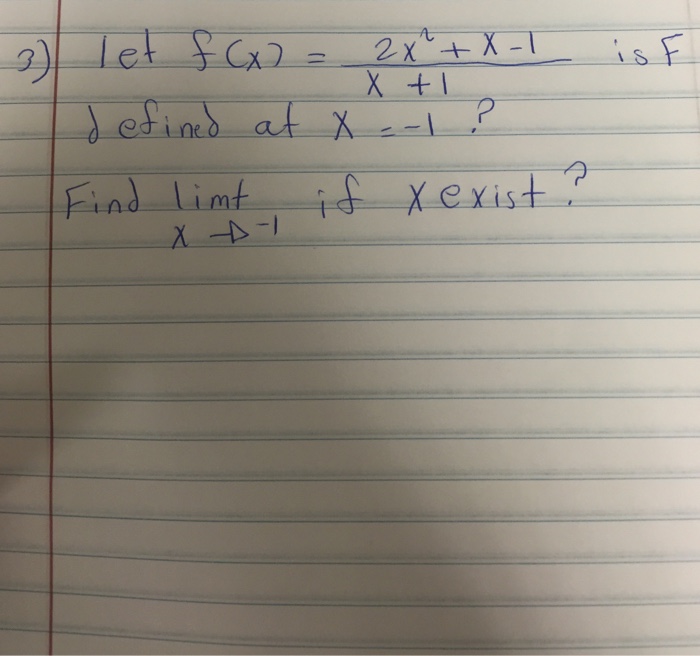 3) let f(x) = (2x² + x - 1)/(x + 1) is F
defined at x = -1 ?
Find limt x→-1 if x exist ?